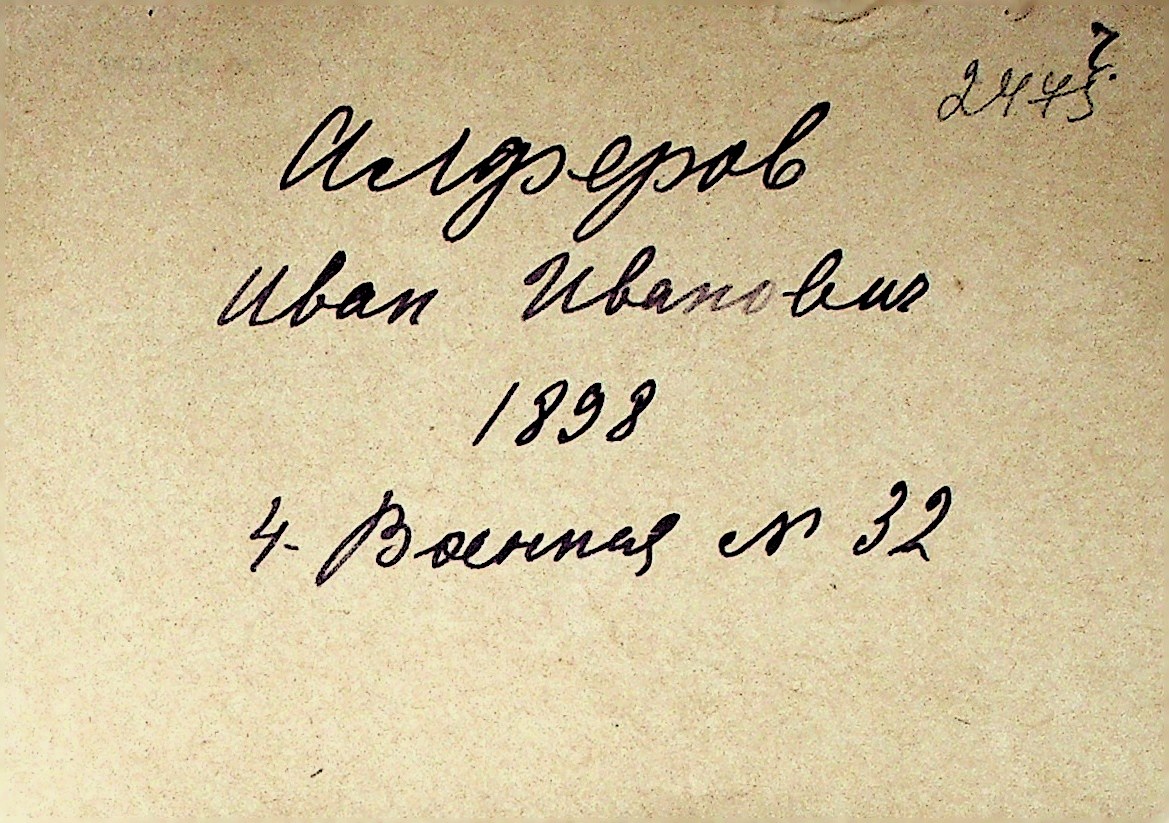 Алферов
Иван Иванович
1898
4-Военная № 32